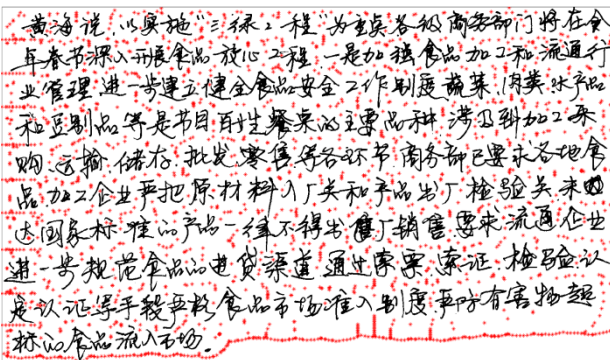 黄海说,以实施“三绿工程”为重点各级商务部门将在今
年春节深入开展食品放心工程.一是加强食品加工和流通行
业管理.进一步建立健全食品安全工作制度蔬菜、肉类、水产品
和豆制品等是节日百姓餐桌的主要品种.涉及到加工采
购、运输、储存、批发、零售等各环节.商务部已要求各地食
品加工企业严把原材料入厂关和产品出厂检验关未
达国家标准的产品一律不得出厂销售要求流通企业
进一步规范食品的进货渠道通过索票、索证、检验认
定认证等手段严格食品市场准入制度严防有害物超
标的食品流入市场.